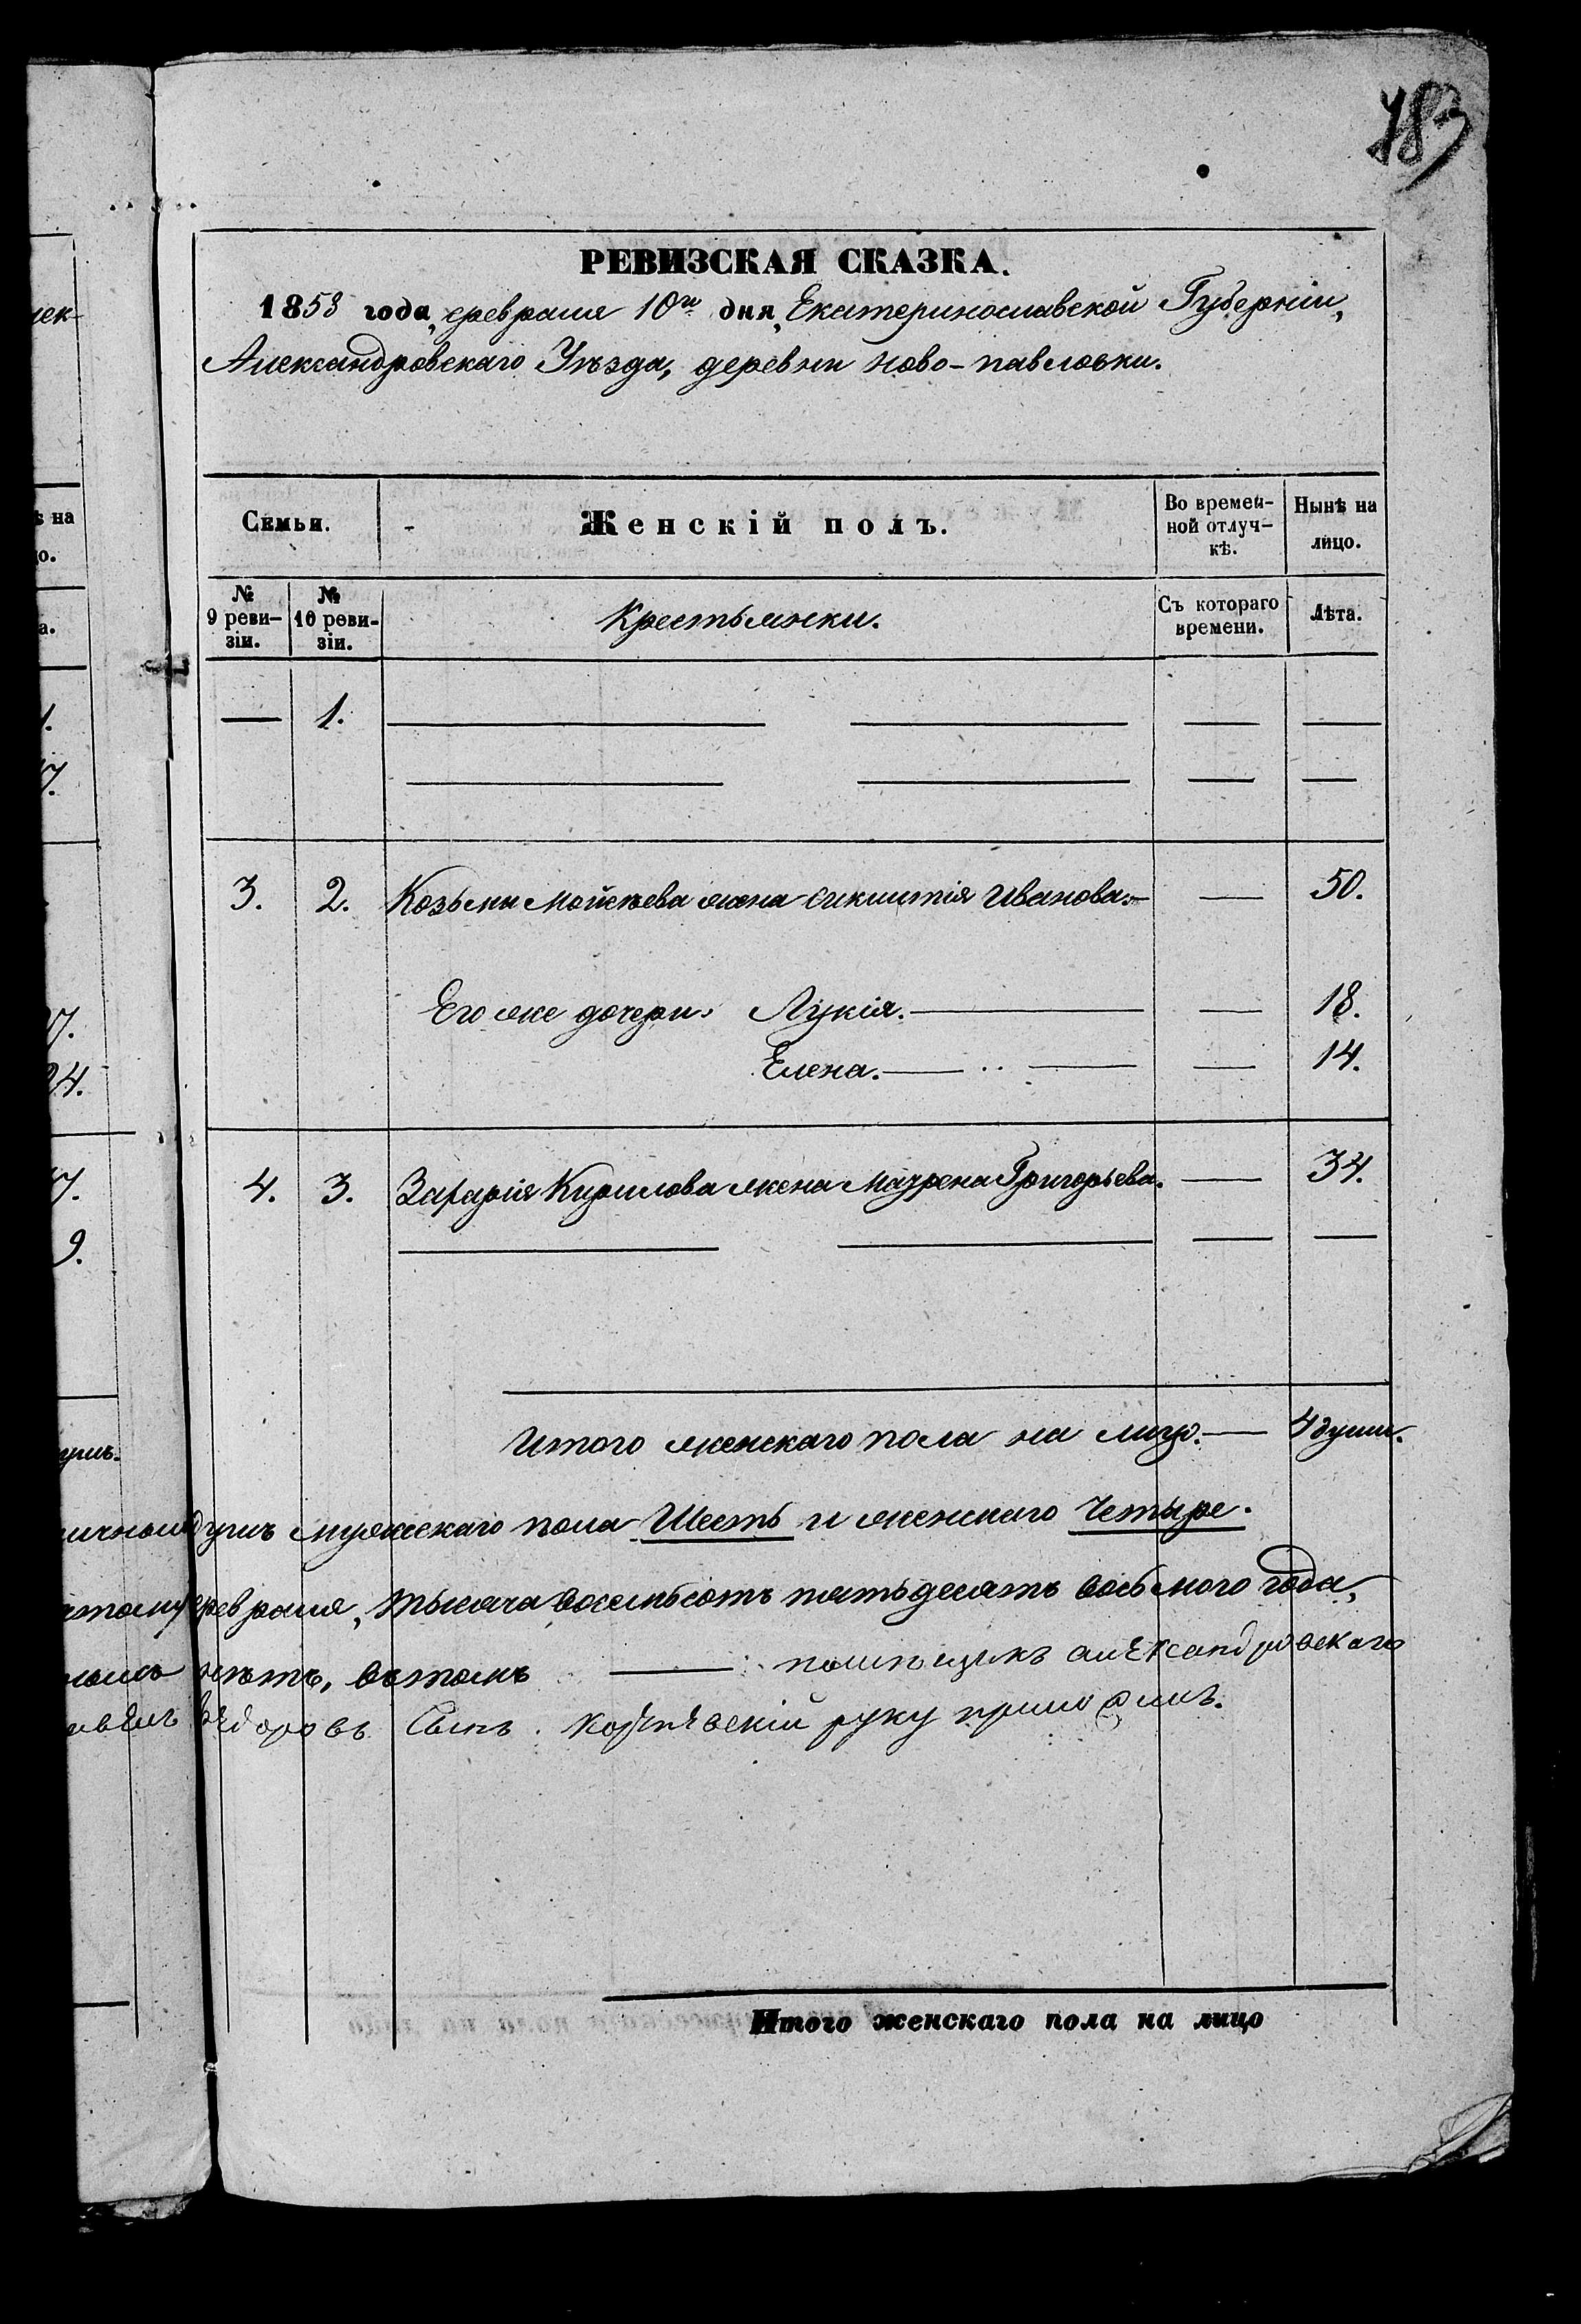 783
РЕВИЗСКАЯ СКАЗКА.
1858 года, февраля 10го дня, Екатеринославской Губерніи,
Александровскаго Уѣзда, деревни Ново-павловки.
Семьи.
Женскій полъ.
Во времен-
ной отлуч-
кѣ.
Нынѣ на
лицо.
№
9 реви-
зіи.
№
10 реви-
зіи.
Крестьянки.
Съ котораго
времени.
Лѣта.
1.
3. 2. Козьмы Мойсѣева жена Иванова. 50.
Его же дочери: Лукія. 18.
Елена. 14.
4. 3. Захарія Кирилова жена Маурена Григорьева. 34.
Итого женскаго пола на лицо. 4 души.
душъ мужескаго пола Шесть и женскаго Четыре.
февраля, тысяча восемьсотъ пятьдесятъ восьмого года,
нѣтъ, въ томъ помѣщикъ александровскаго
Сынъ руку приложилъ.
Итого женскаго пола на лицо
ѣ на
цо.
та.
7.
24.
7.
9.